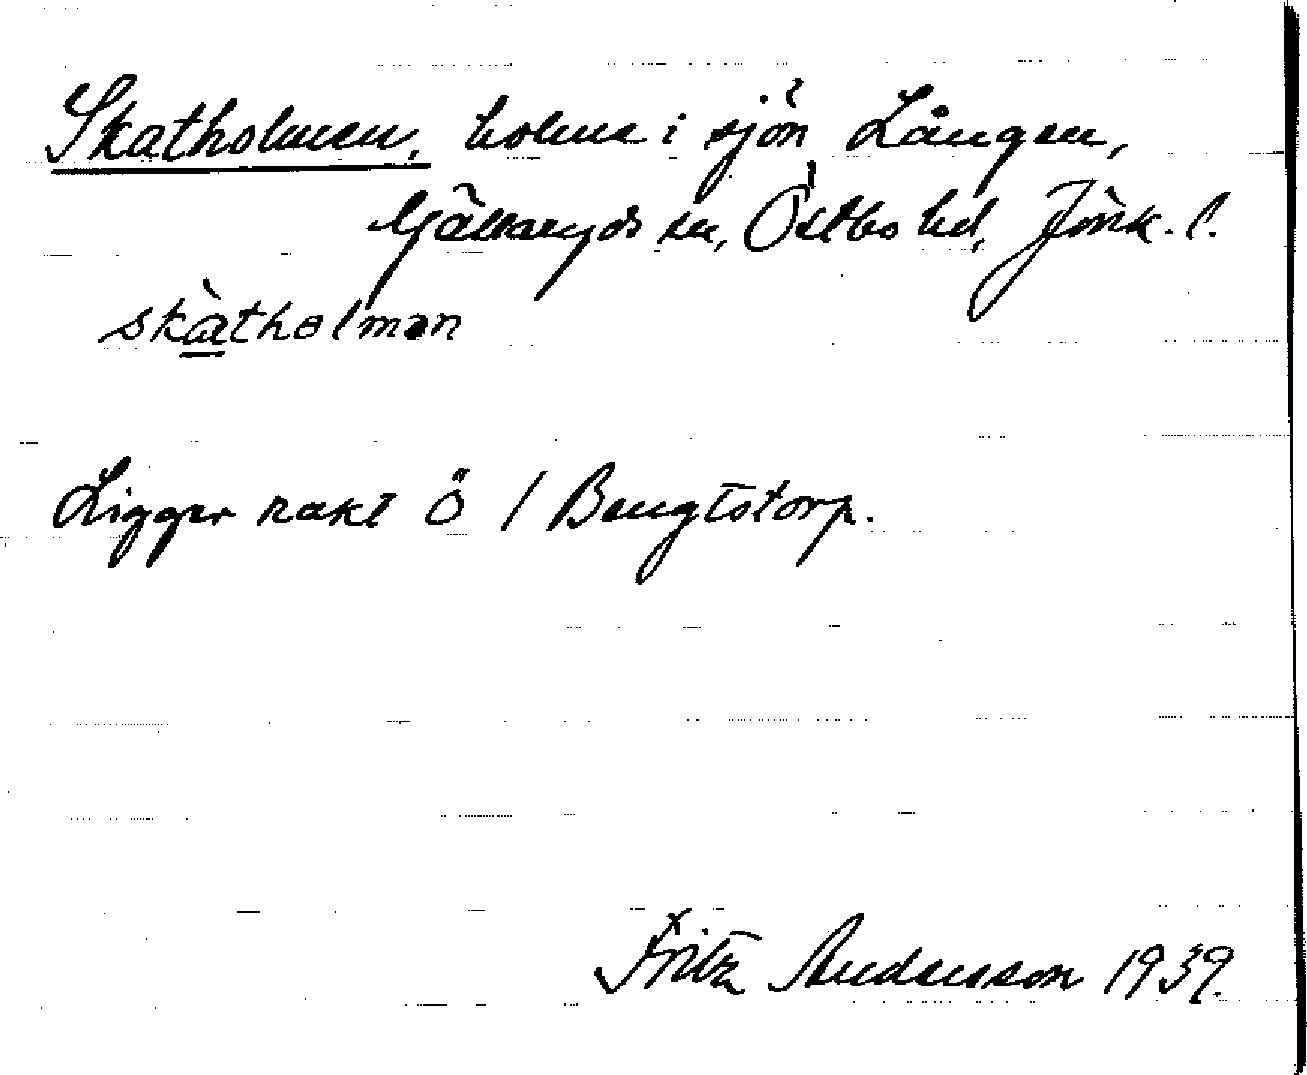 Skatholmen, holme i sjön Lången,
Gällaryds sn, Östbo hd, Jönk. l.
skàtholmən
Ligger rakt ö / Bengtstorp.
Fritz Andersson 1939.